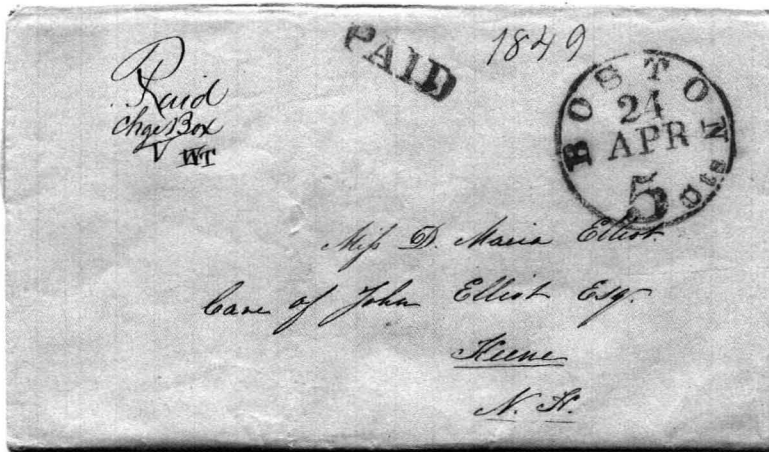 Paid
chge Box
V WT
PAID
1849
BOSTON
24
APR
5 Cts
Miss D. Maria Elliot.
Care of John Elliot Esq.
Keene
N. H.